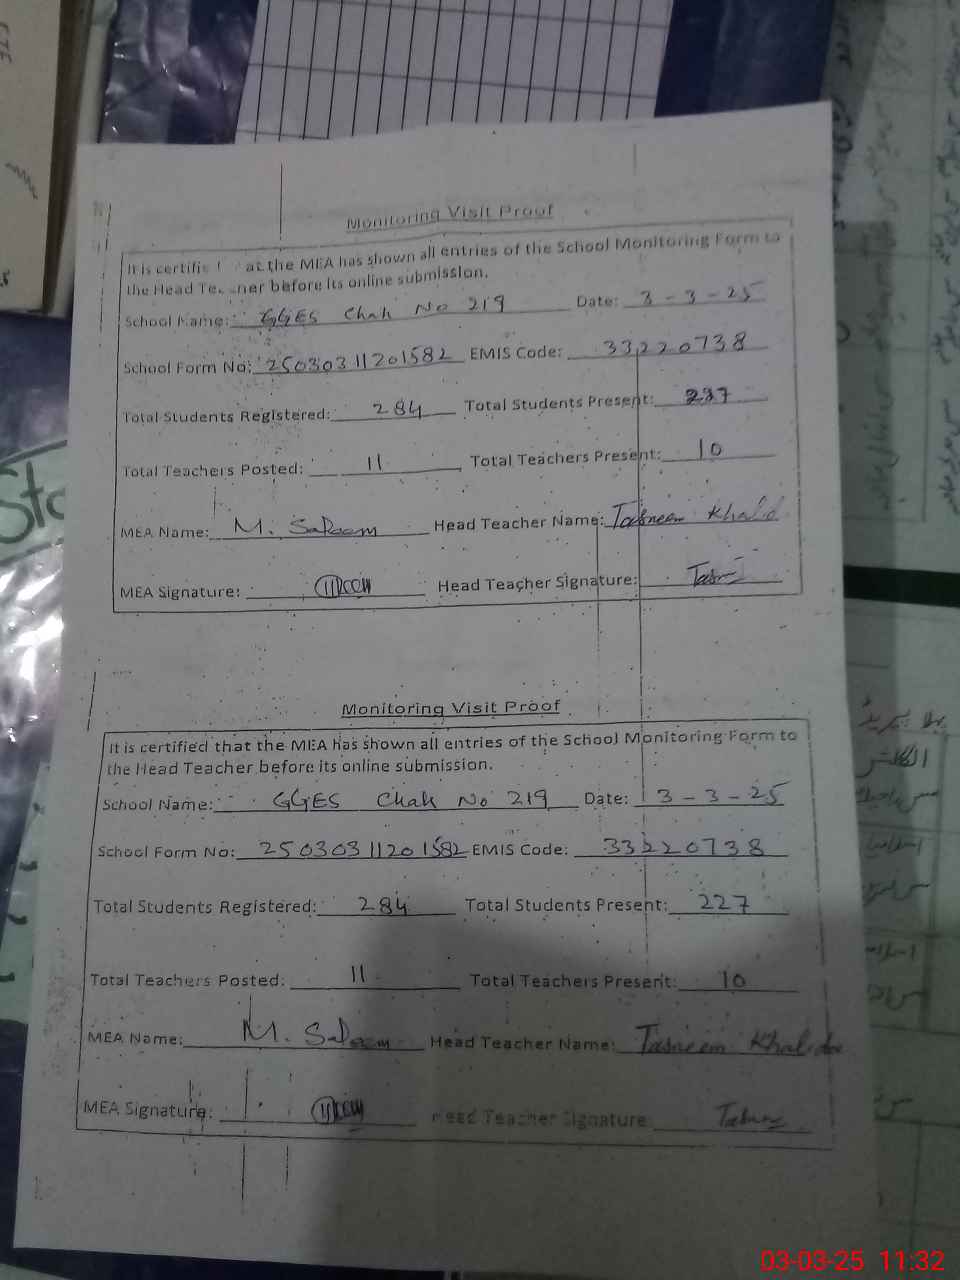 Monitoring Visit Proof
It is certifie at the MEA has shown all entries of the School Monitoring Form to
the Head Te ner before its online submission.
School Name: GGES Chak No 219 Date: 3-3-25
School Form No: 25030311201582 EMIS Code: 33220738
Total Students Registered: 284 Total Students Present: 227
Total Teachers Posted: 11 Total Teachers Present: 10
MEA Name: M. Saleem Head Teacher Name: Tasneem Khalid
MEA Signature: Head Teacher Signature:
Monitoring Visit Proof
It is certified that the MEA has shown all entries of the School Monitoring Form to
the Head Teacher before its online submission.
School Name: GGES Chak No 219 Date: 3-3-25
School Form No: 25030311201582 EMIS Code: 33220738
Total Students Registered: 284 Total Students Present: 227
Total Teachers Posted: 11 Total Teachers Present: 10
MEA Name: M. Saleem Head Teacher Name: Tasneem Khalid
MEA Signature: Head Teacher Signature:
03-03-25 11:32